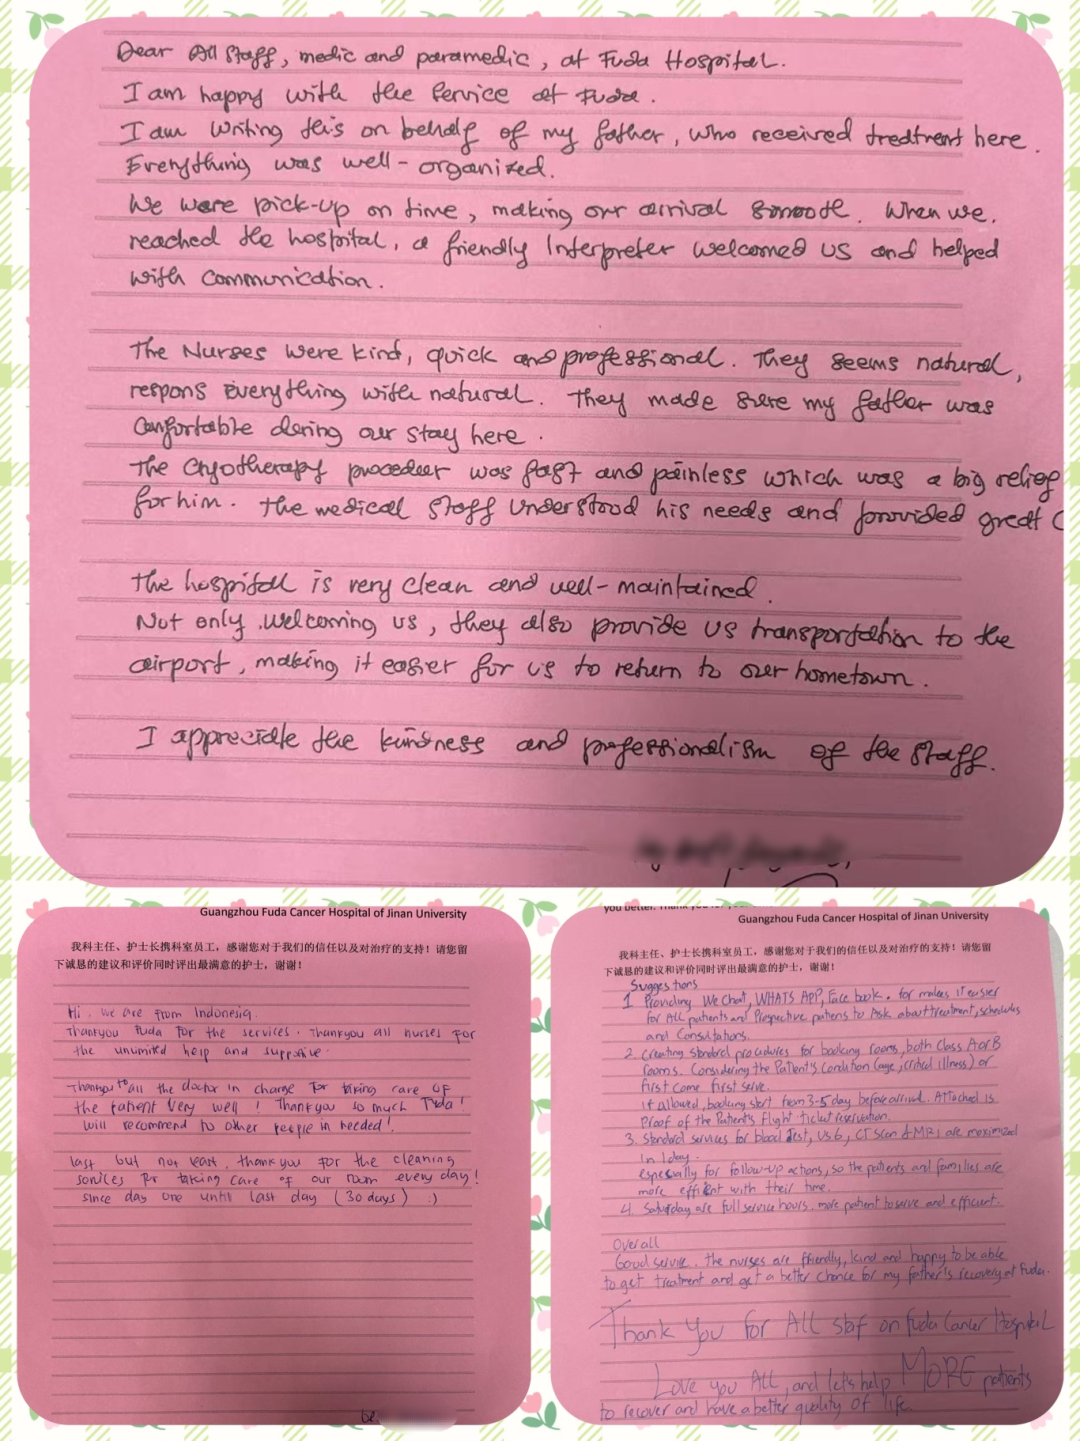 Dear All Staff, medic and paramedic, at Fuda Hospital.
I am happy with the service at Fuda.
I am writing this on behalf of my father, who received treatment here.
Everything was well-organized.
We were pick-up on time, making our arrival smooth. When we,
reached the hospital, a friendly Interpreter welcomed us and helped
with communication.
The Nurses were kind, quick and professional. They seems natural,
respons everything with natural. They made sure my father was
Confortable dering our stay here.
The Cryotherapy procedeer was fast and painless which was a big relief
for him. The medical staff understood his needs and provided great
The hospital is very clean and well-maintained.
Not only welcoming us, they also provide us transportation to the
airport, making it easier for us to return to our hometown.
I appreciate the kindness and professionalism of the staff.
Guangzhou Fuda Cancer Hospital of Jinan University
我科主任、护士长携科室员工，感谢您对于我们的信任以及对治疗的支持！请您留
下诚恳的建议和评价同时评出最满意的护士，谢谢！
Hi, we are from Indonesia.
Thankyou Fuda for the services. Thankyou all nurses for
the unlimited help and supportive.
Thankyou to all the doctor in charge for taking care of
the patient very well! Thankyou so much Fuda!
Will recommend to other people in needed!
last but not least, thankyou for the cleaning
services for taking care of our room every day!
since day one until last day (30 days) :)
you better. Thank you for your
Guangzhou Fuda Cancer Hospital of Jinan University
我科主任、护士长携科室员工，感谢您对于我们的信任以及对治疗的支持！请您留
下诚恳的建议和评价同时评出最满意的护士，谢谢！
Suggestions
1 Providing We Chat, WHATS APP, Face book. for makes it easier
for All patients and Prospective patiens to Ask about treatment, schedules
and Consultations.
2. Creating standard procedures for booking rooms, both Class A or B
rooms. Considering the Patient's condition (age, critical illness) or
first come first serve.
if allowed, booking start from 3-5 day before arrival. Attached is
Proof of the Patient's Flight ticket reservation.
3. Standard services for blood test, USG, CT Scan & MRI are maximized
in 1 day.
especially for follow-up actions, so the patients and families are
more efficient with their time.
4. Saturday are full service hours, more patient to serve and efficient.
Overall
Good service. the nurses are friendly, kind and happy to be able
to get treatment and get a better chance for my father's recovery at Fuda.
Thank You for All staf on Fuda Cancer Hospital
Love you All, and let's help MORE patients
to recover and have a better quality of life.